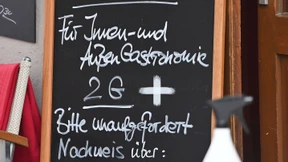 Für Innen- und
Außen Gastronomie
2G +
Bitte unaufgefordert
Nachweis über: